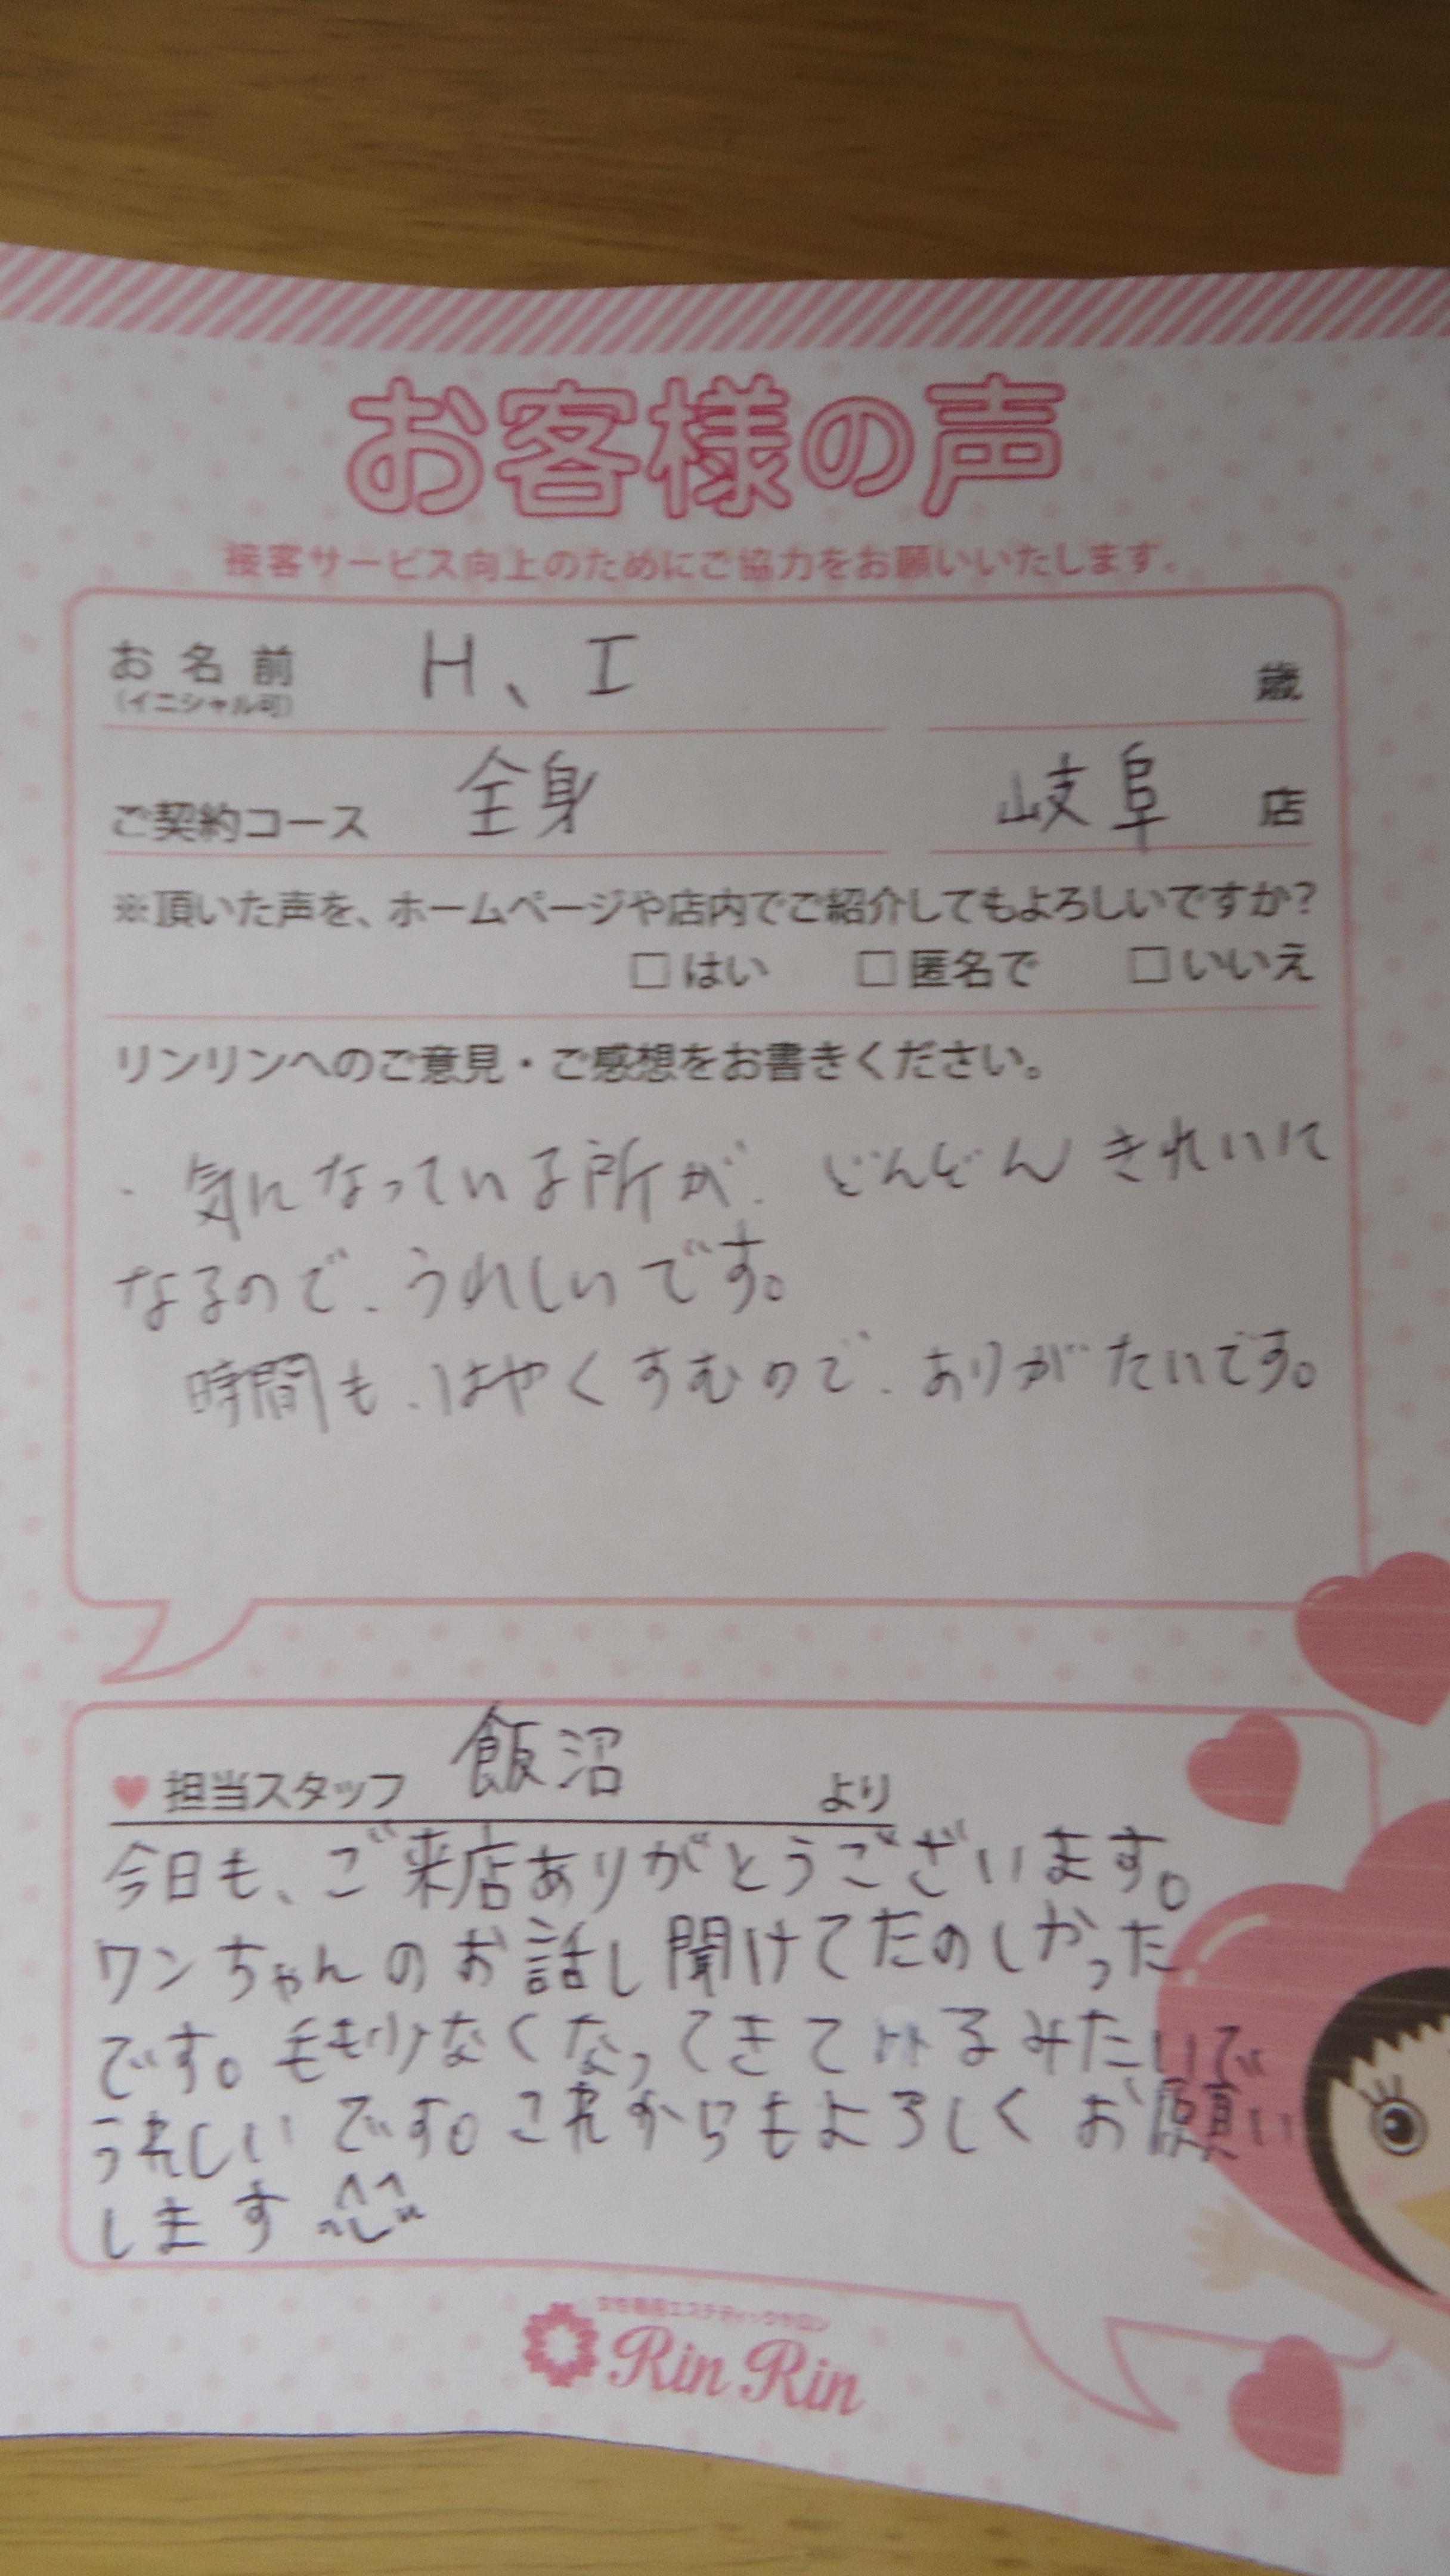 お客様の声
接客サービス向上のためにご協力をお願いいたします。
お名前 H、I 歳
(イニシャル可)
ご契約コース 全身 岐阜 店
※頂いた声を、ホームページや店内でご紹介してもよろしいですか?
□はい □匿名で □いいえ
リンリンへのご意見・ご感想をお書きください。
・気になっている所が、どんどんきれいに
なるので、うれしいです。
時間も、はやくすむので、ありがたいです。
♥担当スタッフ 飯沼 より
今日も、ご来店ありがとうございます。
ワンちゃんのお話し聞けてたのしかった
です。毛も少なくなってきているみたいで
うれしいです。これからもよろしくお願い
します ^^
女性専用エステティックサロン
Rin Rin